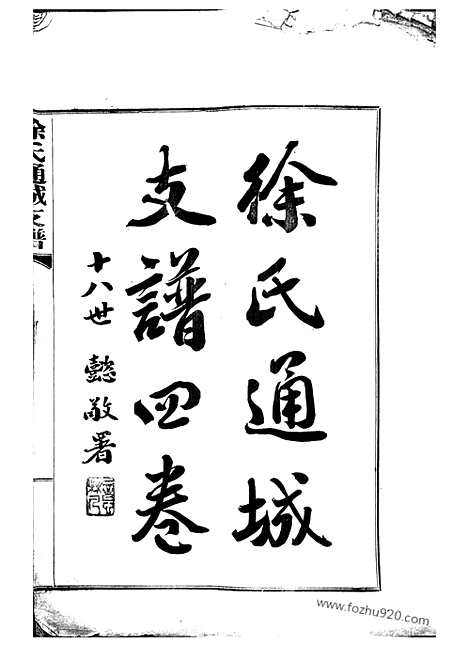 徐氏通城
支譜四卷
十八世 懿敬署
徐氏通城支譜
www.fozhu920.com